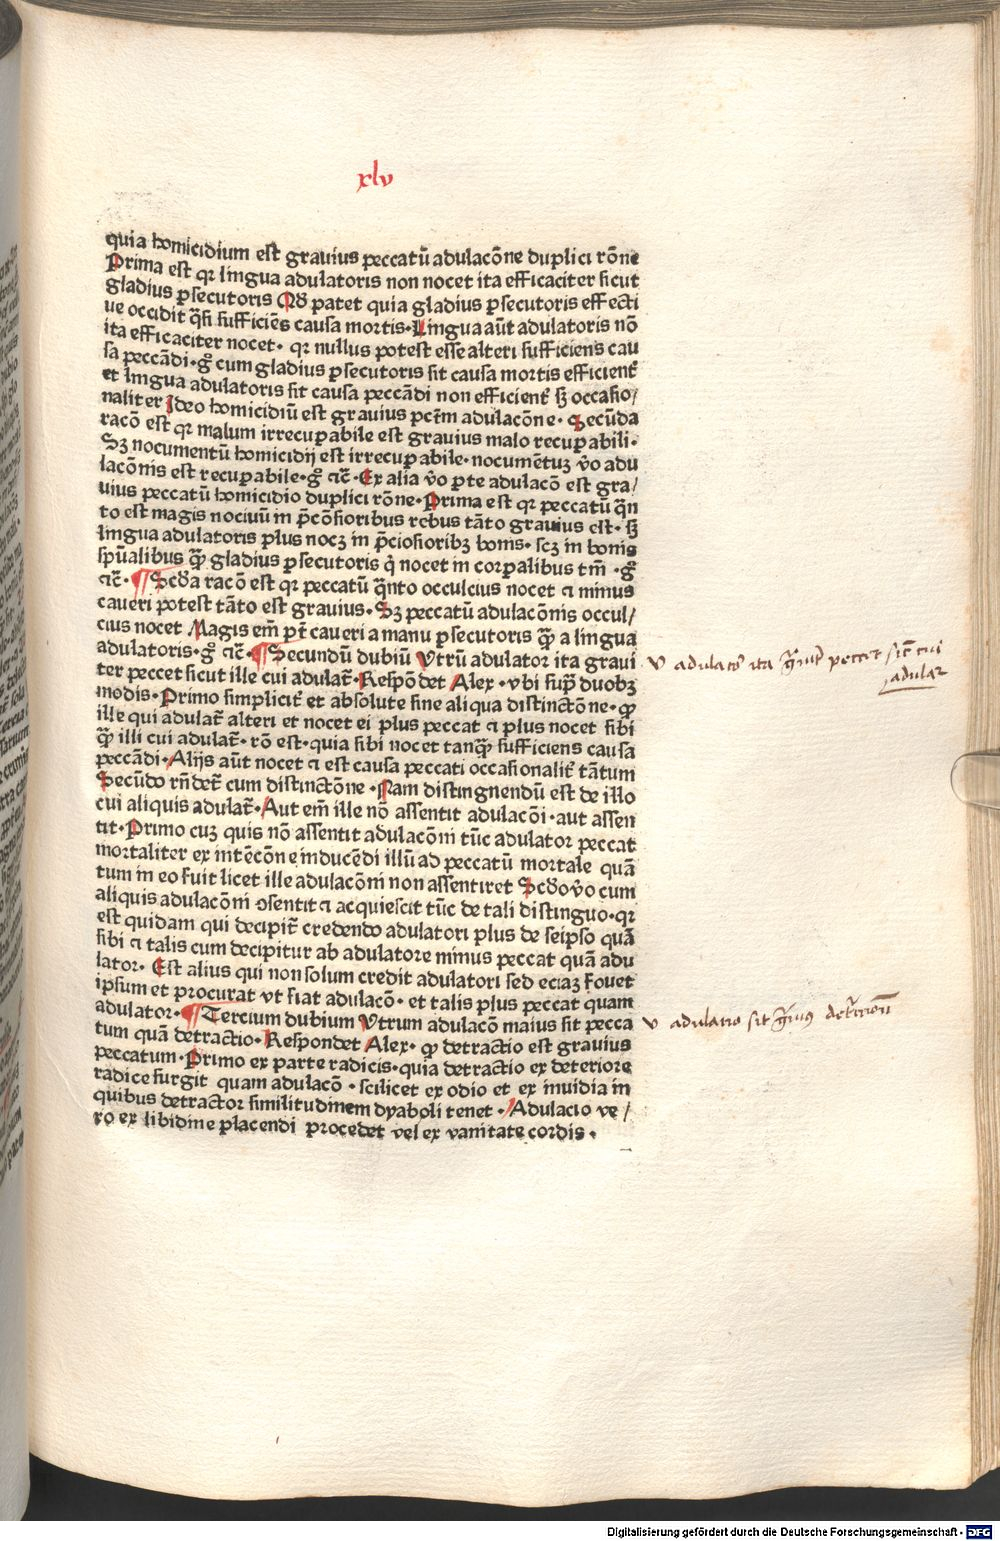 xlv
quia homicidium est gravius peccatū adulacōne duplici rōne
Prima est qr lingua adulatoris non nocet ita efficaciter sicut
gladius ꝑsecutoris Qd patet quia gladius ꝑsecutoris effecti
ue occidit q̄si sufficiēs causa mortis. Lingua aūt adulatoris nō
ita efficaciter nocet. qr nullus potest esse alteri sufficiens cau
sa peccādi. gͦ cum gladius ꝑsecutoris sit causa mortis efficient̄
et lingua adulatoris sit causa peccādi non efficient̄ sꝫ occasio/
naliter Ideo homicidiū est gravius pctm̄ adulacōne. Secūda
racō est qr malum irrecuꝑabile est gravius malo recuꝑabili.
Sꝫ nocumentū homicidij est irrecuꝑabile. nocumētuꝫ v̄o adu
lacōnis est recuꝑabile. gͦ ⁊c̄. Ex alia v̄o ꝑte adulacō est gra/
vius peccatū homicidio duplici rōne. Prima est qr peccatū q̄n
to est magis nociuū in p̄cōsioribus rebus tāto gravius est. sꝫ
lingua adulatoris plus nocꝫ in p̄ciosioribꝫ bonis. scꝫ in bonis
spūalibus qꝫ̄ gladius ꝑsecutoris q̄ nocet in corꝑalibus tm̄. gͦ
⁊c̄. ¶ Scd̄a racō est qr peccatū q̄nto occulcius nocet ⁊ minus
caueri potest tāto est gravius. Sꝫ peccatū adulacōnis occul/
cius nocet Magis em̄ pt̄ caueri a manu ꝑsecutoris qꝫ̄ a lingua
adulatoris. gͦ ⁊c̄. ¶ Secundū dubiū Vtrū adulator ita graui
ter peccet sicut ille cui adulat̄. Respōdet Alex. vbi supͣ duobꝫ
modis. Primo simplicit̄ et absolute sine aliqua distinctōne. ꝙ
ille qui adulat̄ alteri et nocet ei plus peccat ⁊ plus nocet sibi
qꝫ̄ illi cui adulat̄. rō est. quia sibi nocet tanqꝫ̄ sufficiens causa
peccādi. Alijs aūt nocet ⁊ est causa peccati occasionalit̄ tātum
Secūdo rn̄det̄ cum distinctōne. Nam distingnendū est de illo
cui aliquis adulat̄. Aut em̄ ille nō assentit adulacōi. aut assen
tit. Primo cuꝫ quis nō assentit adulacōni tūc adulator peccat
mortaliter ex intēcōne inducēdi illū ad peccatū mortale quā
tum in eo fuit licet ille adulacōni non assentiret Scd̄o v̄o cum
aliquis adulacōni ꝯsentit ⁊ acquiescit tūc de tali distinguo. qr
est quidam qui decipit̄ credendo adulatori plus de seipso quā
sibi ⁊ talis cum decipitur ab adulatore minus peccat quā adu
lator. Est alius qui non solum credit adulatori sed eciaꝫ fouet
ipsum et procurat vt fiat adulacō. et talis plus peccat quam
adulator. ¶ Tercium dubium Vtrum adulacō maius sit pecca
tum quā detractio. Respondet Alex. ꝙ detractio est gravius
peccatum. Primo ex parte radicis. quia detractio ex deteriore
radice surgit quam adulacō. scilicet ex odio et ex inuidia in
quibus detractor similitudinem dyaboli tenet. Adulacio ve/
ro ex libidine placendi procedet vel ex vanitate cordis.
v adulator ita gͣuit̄ peccet sic̄ cui
adulat̄
v adulatio sit gͣuius detͣction̄
Digitalisierung gefördert durch die Deutsche Forschungsgemeinschaft - DFG